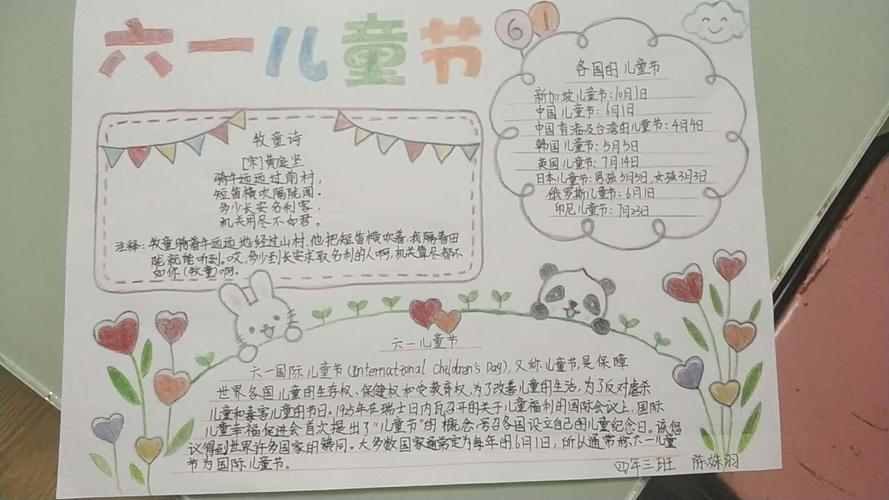 六一儿童节
61
各国的儿童节
新加坡儿童节:10月1日
中国儿童节:6月1日
中国香港及台湾的儿童节:4月4日
韩国儿童节:5月5日
英国儿童节:7月14日
日本儿童节:男孩5月5日,女孩3月3日
俄罗斯儿童节:6月1日
印尼儿童节:7月23日
牧童诗
[宋]黄庭坚
骑牛远远过前村,
短笛横吹隔陇闻。
多少长安名利客,
机关用尽不如君。
注释:牧童骑着牛远远地经过山村,他把短笛横吹着,我隔着田
陇就能听到。哎,多少到长安求取名利的人啊,机关算尽都不
如你(牧童)啊。
六一儿童节
六一国际儿童节(International Children's Day),又称儿童节,是保障
世界各国儿童的生存权、保健权和受教育权,为了改善儿童的生活,为了反对虐杀
儿童和毒害儿童的节日。1925年在瑞士日内瓦召开的关于儿童福利的国际会议上,国际
儿童幸福促进会首次提出了“儿童节”的概念,号召各国设立自己的儿童纪念日。该倡
议得到世界许多国家的赞同。大多数国家通常定为每年的6月1日,所以通常称六一儿童
节为国际儿童节。
四年三班 陈姝羽